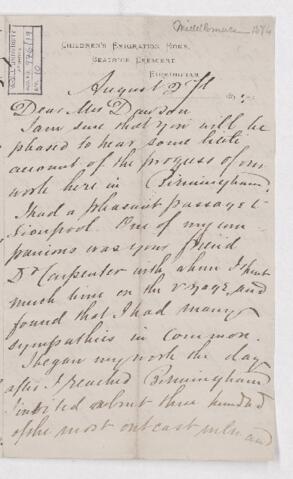 Middlemore 1874
CHILDREN'S EMIGRATION HOMES,
BEATRICE CRESCENT
BIRMINGHAM,
August
Dear Mr Dawson
I am sure that you will be
pleased to hear some little
account of the progress of our
work here in Birmingham
I had a pleasant passage to
Liverpool. One of my com-
panions was your friend
Dr Carpenter with whom I spent
much time on the voyage and
found that I had many
sympathies in common.
I began my work the day
after I reached Birmingham
I invited about three hundred
of the most outcast men and